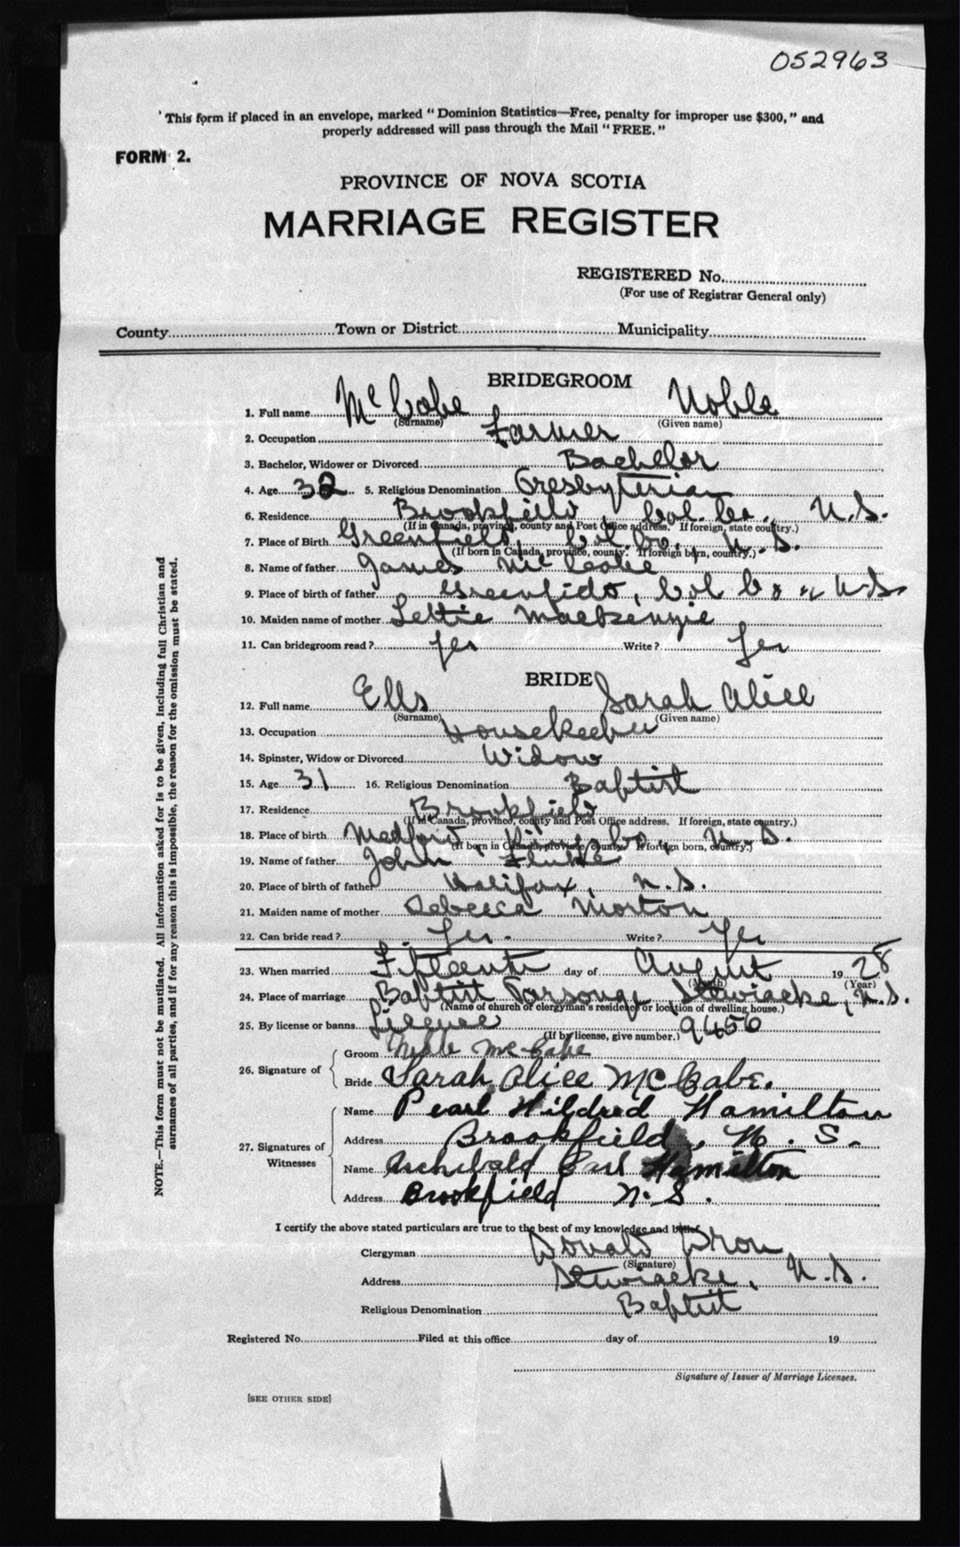 052963
"This form if placed in an envelope, marked "Dominion Statistics—Free, penalty for improper use $300," and
properly addressed will pass through the Mail "FREE."
FORM 2.
PROVINCE OF NOVA SCOTIA
MARRIAGE REGISTER
REGISTERED No.
(For use of Registrar General only)
County Town or District Municipality
BRIDEGROOM
1. Full name McCabe Noble
(Surname) (Given name)
2. Occupation Farmer
3. Bachelor, Widower or Divorced Bachelor
4. Age 32 5. Religious Denomination Presbyterian
6. Residence Brookfield, Col. Co., N.S.
(If in Canada, province, county and Post Office address. If foreign, state country.)
7. Place of Birth Greenfield, Col. Co., N.S.
(If born in Canada, province, county. If foreign born, country.)
8. Name of father James McCabe
9. Place of birth of father Greenfield, Col Co N.S.
10. Maiden name of mother Lettie MacKenzie
11. Can bridegroom read? Yes Write? Yes
BRIDE
12. Full name Ells Sarah Alice
(Surname) (Given name)
13. Occupation Housekeeper
14. Spinster, Widow or Divorced Widow
15. Age 31 16. Religious Denomination Baptist
17. Residence Brookfield
(If in Canada, province, county and Post Office address. If foreign, state country.)
18. Place of birth Medford, Kings Co., N.S.
(If born in Canada, province, county. If foreign born, country.)
19. Name of father John
20. Place of birth of father Halifax, N.S.
21. Maiden name of mother Rebecca Morton
22. Can bride read? Yes. Write? Yes
23. When married Fifteenth day of August 1928
(Month) (Year)
24. Place of marriage Baptist Parsonage Stewiacke, N.S.
(Name of church or clergyman's residence or location of dwelling house.)
25. By license or banns License 9456
(If by license, give number.)
26. Signature of
Groom Noble McCabe
Bride Sarah Alice McCabe.
27. Signatures of Witnesses
Name Pearl Mildred Hamilton
Address Brookfield, N. S.
Name Archibald Earl Hamilton
Address Brookfield N. S.
I certify the above stated particulars are true to the best of my knowledge and belief.
Clergyman Donald
(Signature)
Address Stewiacke, N.S.
Religious Denomination Baptist
Registered No. Filed at this office day of 19
Signature of Issuer of Marriage Licenses.
[SEE OTHER SIDE]
NOTE.—This form must not be mutilated. All information asked for is to be given, including full Christian and
surnames of all parties, and if for any reason this is impossible, the reason for the omission must be stated.